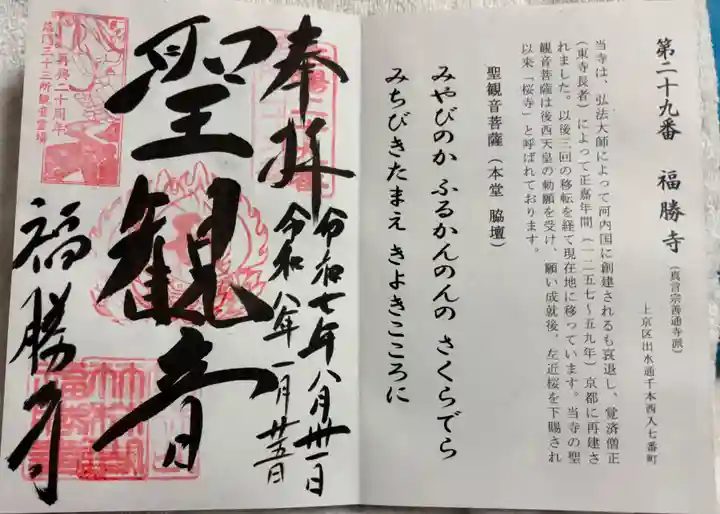 第二十九番 福勝寺(真言宗善通寺派)
上京区出水通千本西入七番町
当寺は、弘法大師によって河内国に創建されるも衰退し、覚済僧正
(東寺長者)によって正嘉年間(一二五七~五九年)京都に再建さ
れました。以後三回の移転を経て現在地に移っています。当寺の聖
観音菩薩は後西天皇の勅願を受け、願い成就後、左近桜を下賜され
以来「桜寺」と呼ばれております。
聖観音菩薩(本堂 脇壇)
みやびのか ふるかんのんの さくらでら
みちびきたまえ きよきこころに
奉拝
令和七年八月卅一日
令和八年一月廿五日
聖観音
福勝寺
再興二十周年
洛陽三十三所観音霊場